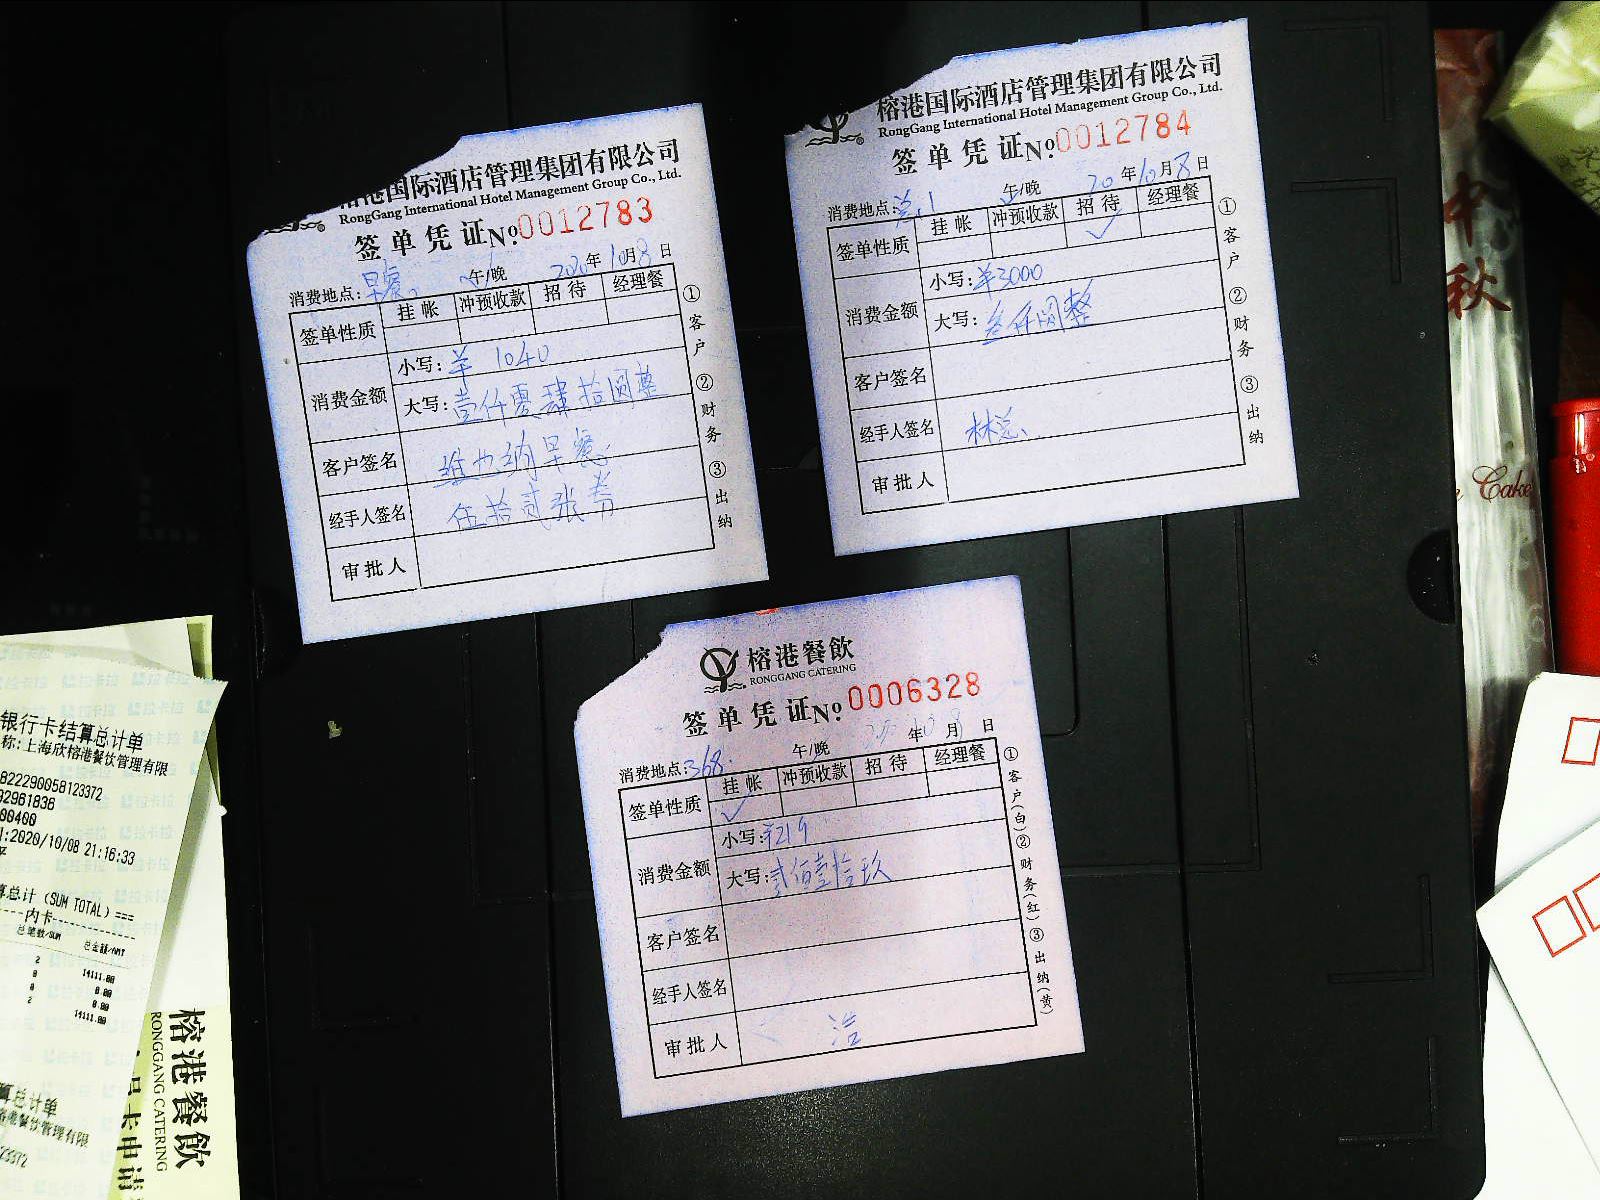 榕港国际酒店管理集团有限公司
RongGang International Hotel Management Group Co., Ltd.
签单凭证№0012783
消费地点:早餐 午/晚 2020年10月8日
签单性质 挂帐 冲预收款 招待 经理餐
消费金额 小写:¥1040
大写:壹仟零肆拾圆整
客户签名 维也纳早餐
经手人签名 伍拾贰张券
审批人
①客户 ②财务 ③出纳
榕港国际酒店管理集团有限公司
RongGang International Hotel Management Group Co., Ltd.
签单凭证№0012784
消费地点: 午/晚 20年10月8日
签单性质 挂帐 冲预收款 招待 经理餐
消费金额 小写:¥3000
大写:叁仟圆整
客户签名
经手人签名 林总
审批人
①客户 ②财务 ③出纳
榕港餐飲
RONGGANG CATERING
签单凭证№0006328
消费地点:368 午/晚 年10月8日
签单性质 挂帐 冲预收款 招待 经理餐
消费金额 小写:¥219
大写:贰佰壹拾玖
客户签名
经手人签名
审批人 浩
①客户(白)②财务(红)③出纳(黄)
银行卡结算总计单
称:上海欣榕港餐饮管理有限
822290058123372
92961836
00400
:2020/10/08 21:16:33
算总计(SUM TOTAL)===
内卡
总笔数/SUM 总金额/AMT
2 14111.00
0 0.00
0 0.00
2 14111.00
榕港餐飲
RONGGANG CATERING
算总计单
榕港餐饮管理有限
23372
中秋
Cake